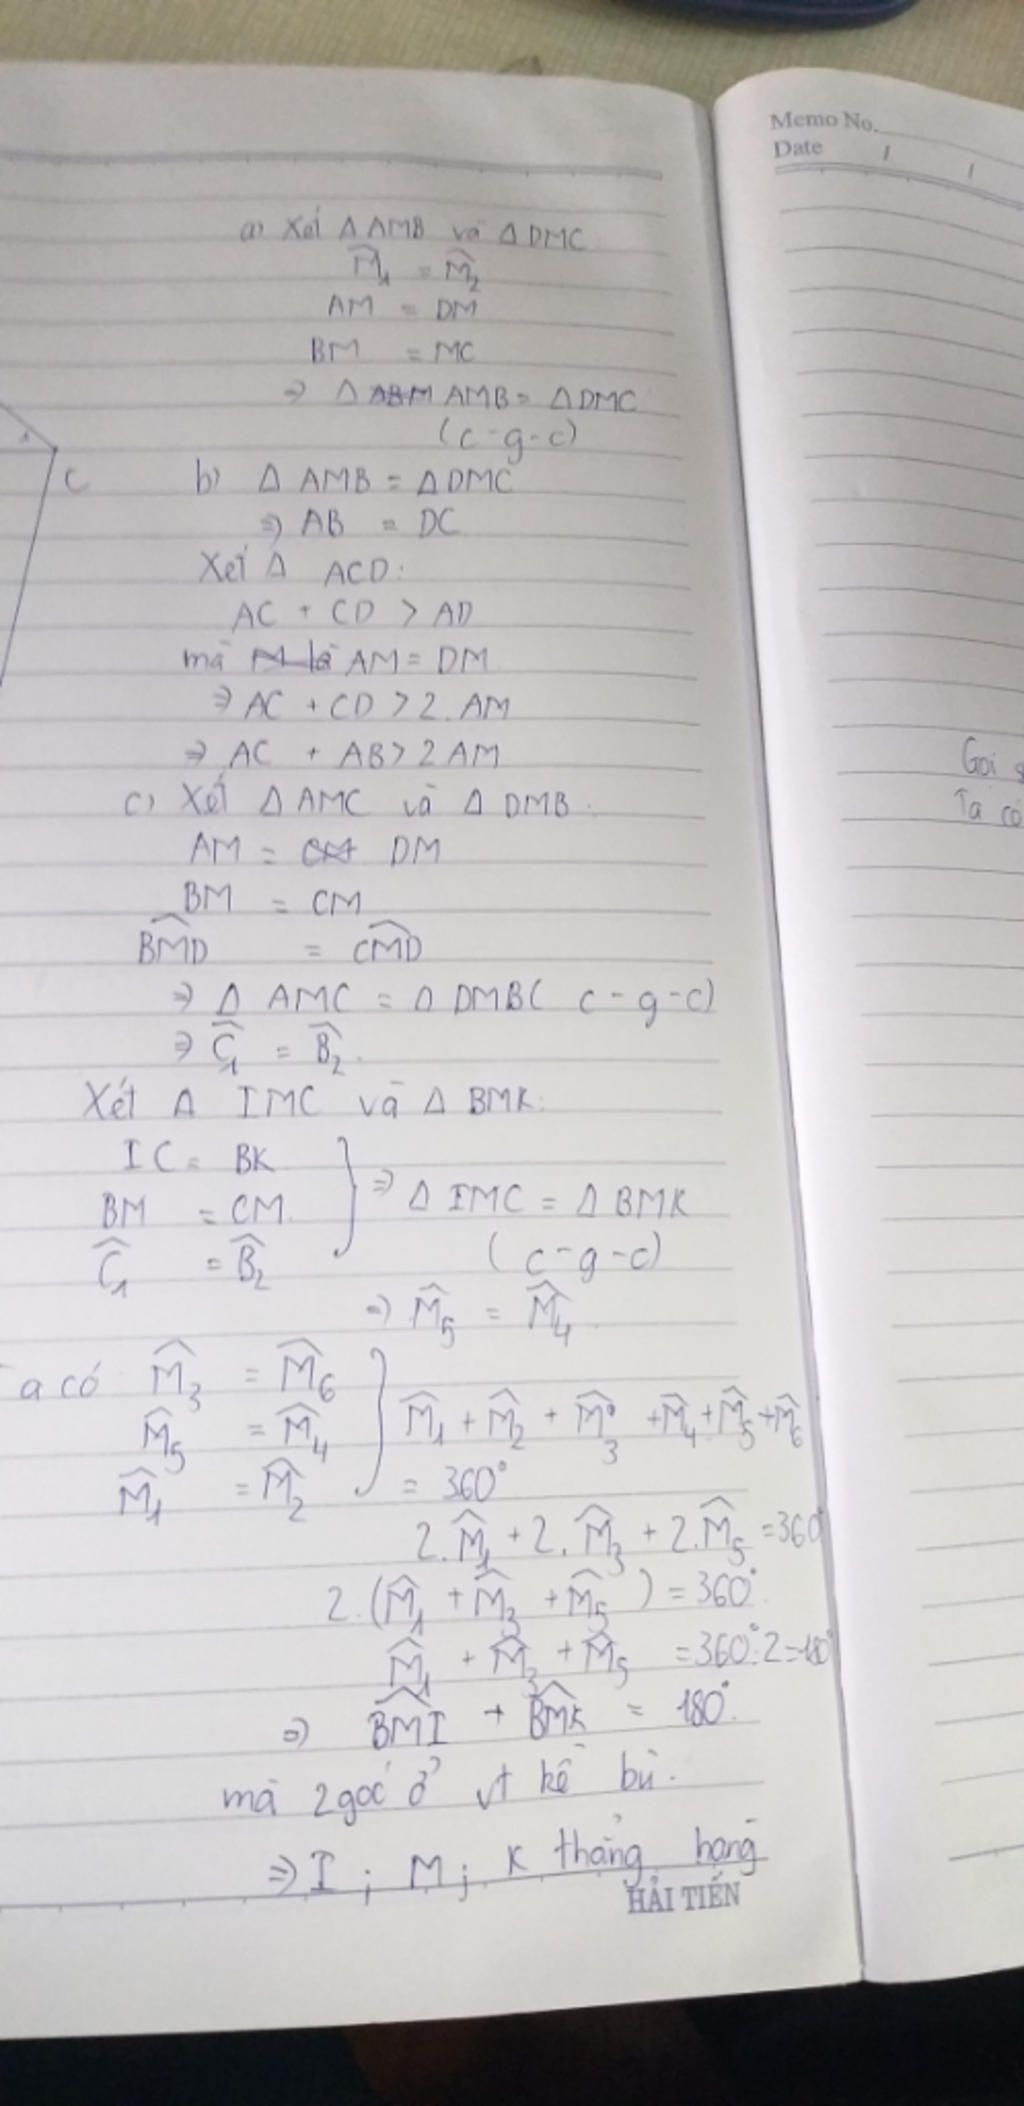 Memo No.
Date / /
a) Xét Δ AMB và Δ DMC
M̂₁ = M̂₂
AM = DM
BM = MC
⇒ Δ AMB = ΔDMC
(c-g-c)
C
b) Δ AMB = ΔDMC
⇒ AB = DC
Xét Δ ACD:
AC + CD > AD
mà AM = DM
⇒ AC + CD > 2.AM
⇒ AC + AB > 2AM
c) Xét Δ AMC và Δ DMB:
AM = DM
BM = CM
BMD̂ = CMD̂
⇒ Δ AMC = Δ DMB( c-g-c)
⇒ Ĉ₁ = B̂₂.
Xét Δ IMC và Δ BMK:
IC = BK
BM = CM.
Ĉ₁ = B̂₂
} ⇒ Δ IMC = Δ BMK
(c-g-c)
⇒ M̂₅ = M̂₄
Ta có M̂₃ = M̂₆
M̂₅ = M̂₄
M̂₁ = M̂₂
} M̂₁ + M̂₂ + M̂₃ + M̂₄ + M̂₅ + M̂₆
= 360°
2.M̂₁ + 2.M̂₃ + 2.M̂₅ = 360
2.(M̂₁ + M̂₃ + M̂₅) = 360°
M̂₁ + M̂₃ + M̂₅ = 360°:2=180°
⇒ BMÎ + BMK̂ = 180°.
mà 2 góc ở vt kề bù.
⇒ I ; M ; K thẳng hàng
HẢI TIẾN
Gọi
Ta có